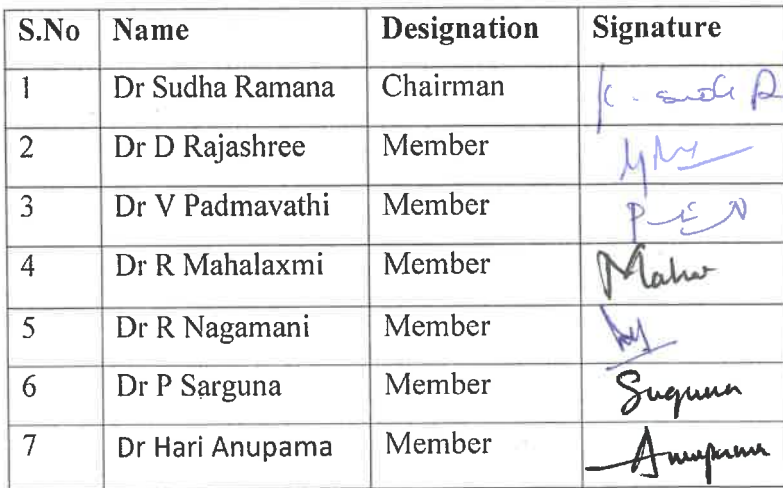 S.No Name Designation Signature
1 Dr Sudha Ramana Chairman
2 Dr D Rajashree Member
3 Dr V Padmavathi Member
4 Dr R Mahalaxmi Member
5 Dr R Nagamani Member
6 Dr P Sarguna Member Suguna
7 Dr Hari Anupama Member Anupama